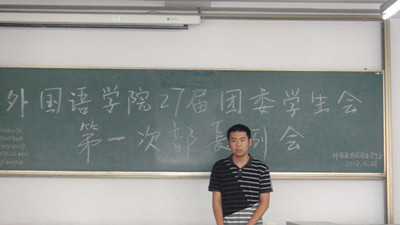 外国语学院27届团委学生会
第一次部长例会